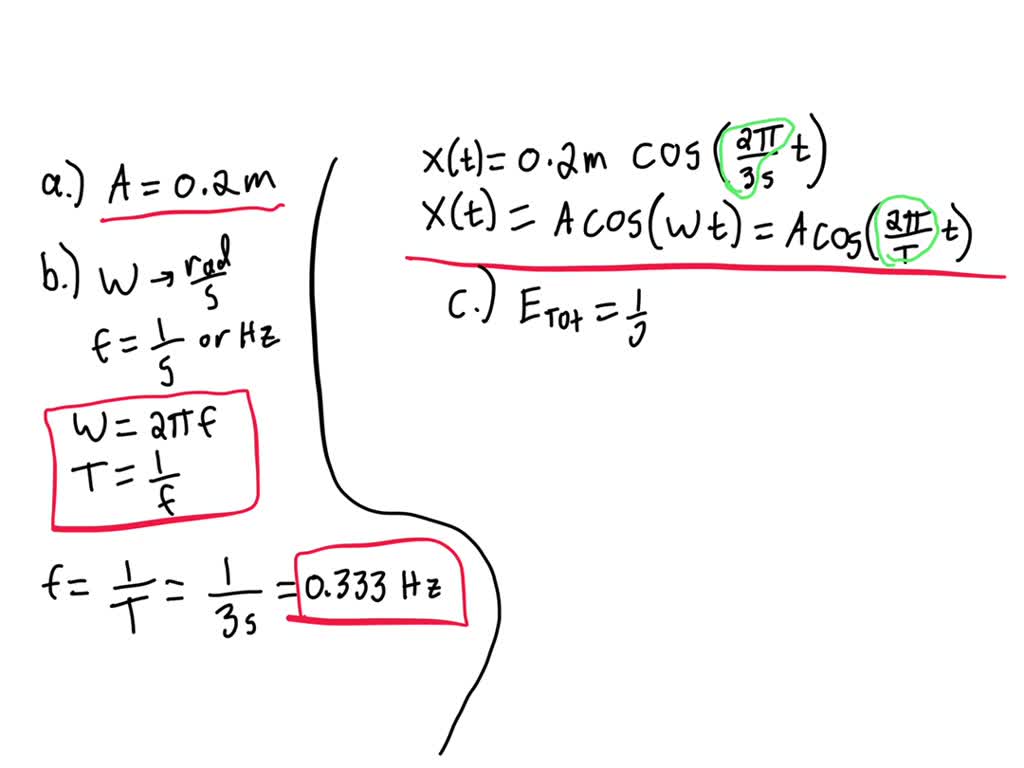 a.) A = 0.2m
b.) W → rad/s
f = 1/s or Hz
W = 2πf
T = 1/f
f = 1/T = 1/3s = 0.333 Hz
X(t) = 0.2m cos(2π/3s t)
X(t) = A cos(Wt) = A cos(2π/T t)
c.) E_Tot = 1/